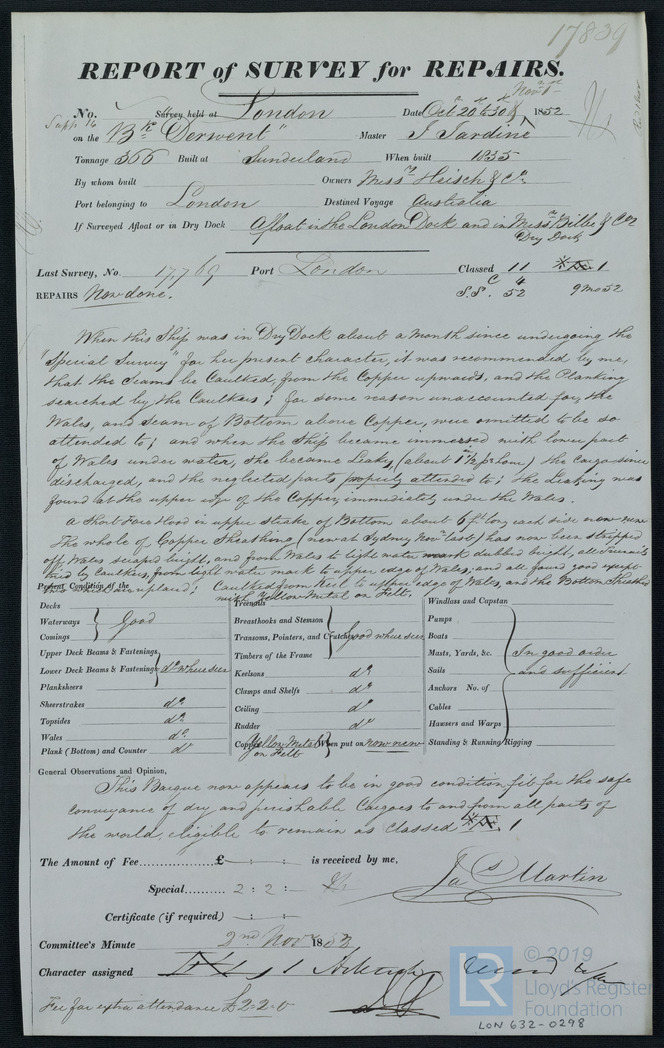 17839
REPORT of SURVEY for REPAIRS.
No. Survey held at London Date Octr 20th to 30th Novr 1st 1852
Supp 14
on the Bk "Derwent" Master J. Jardine
Tonnage 366 Built at Sunderland When built 1835
By whom built Owners Messrs Heisch & Co.
Port belonging to London Destined Voyage Australia
If Surveyed Afloat or in Dry Dock Afloat in the London Dock and in Messrs Bilbe & Co's
Dry Dock
Last Survey, No. 17769 Port London Classed 11 1
REPAIRS Now done. S.S. 52 9 Mo 52
When this Ship was in Dry Dock about a month since undergoing the
"Special Survey" for her present character, it was recommended by me,
that the Seams be Caulked, from the Copper upwards, and the Planking
searched by the Caulkers; for some reason unaccounted for, the
Wales, and seam of Bottom above Copper, were omitted to be so
attended to; and when the Ship became immersed with lower part
of Wales under water, she became Leaky, (about 1½ in pr hour) the Cargo since
discharged, and the neglected parts properly attended to; the Leaking was
found at the upper edge of the Copper, immediately under the Wales.
A Short Fore Hood in upper strake of Bottom about 6 ft long each side now new
The whole of Copper Sheathing (new at Sydney Novr last) has now been stripped
off, Wales scraped bright, and from Wales to light water mark dubbed bright, all Treenails
tried by Caulkers, from light water mark to upper edge of Wales, and all found good except
replaced; Caulked from Keel to upper edge of Wales, and the Bottom Sheathed
with Yellow Metal on Felt.
Present Condition of the
Decks
Waterways Good
Comings
Upper Deck Beams & Fastenings
Lower Deck Beams & Fastenings do where seen
Planksheers
Sheerstrakes do
Topsides do
Wales do
Plank (Bottom) and Counter do
Treenails
Breasthooks and Stemson
Transoms, Pointers, and Crutches Good where seen
Timbers of the Frame
Keelsons do
Clamps and Shelfs do
Ceiling do
Rudder do
Copper Yellow Metal on Felt When put on now new
Windlass and Capstan
Pumps
Boats
Masts, Yards, &c. In good order
Sails and sufficient
Anchors No. of
Cables
Hawsers and Warps
Standing & Running Rigging
General Observations and Opinion,
This Barque now appears to be in good condition, fit for the safe
conveyance of dry and perishable Cargoes to and from all parts of
the world, eligible to remain as classed 1
The Amount of Fee £ : : is received by me,
Special 2 : 2 :
Jas Martin
Certificate (if required) : :
Committee's Minute 2nd Novr 1852
Character assigned
Fee for extra attendance £2-2-0
© 2019
LR
Lloyd's Register
Foundation
LON 632-0298